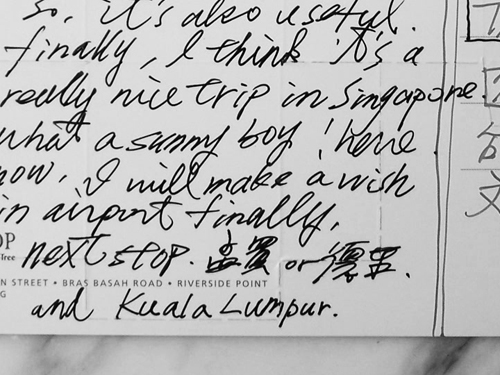 So, it's also useful.
finally, I think it's a
really nice trip in Singapore.
what a sunny boy! here
now, I will make a wish
in airport finally,
next stop. or
Tree
N STREET • BRAS BASAH ROAD • RIVERSIDE POINT
and Kuala Lumpur.